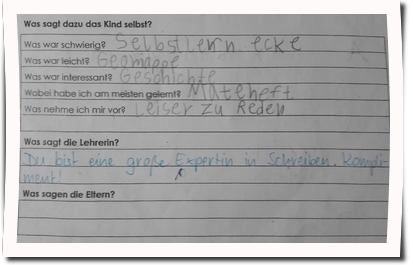 Was sagt dazu das Kind selbst?
Was war schwierig? Selbstlern ecke
Was war leicht? Geomappe
Was war interessant? Geschichte
Wobei habe ich am meisten gelernt? Mateheft
Was nehme ich mir vor? Leiser zu Reden
Was sagt die Lehrerin?
Du bist eine große Expertin in Schreiben. Kompli-
ment!
Was sagen die Eltern?